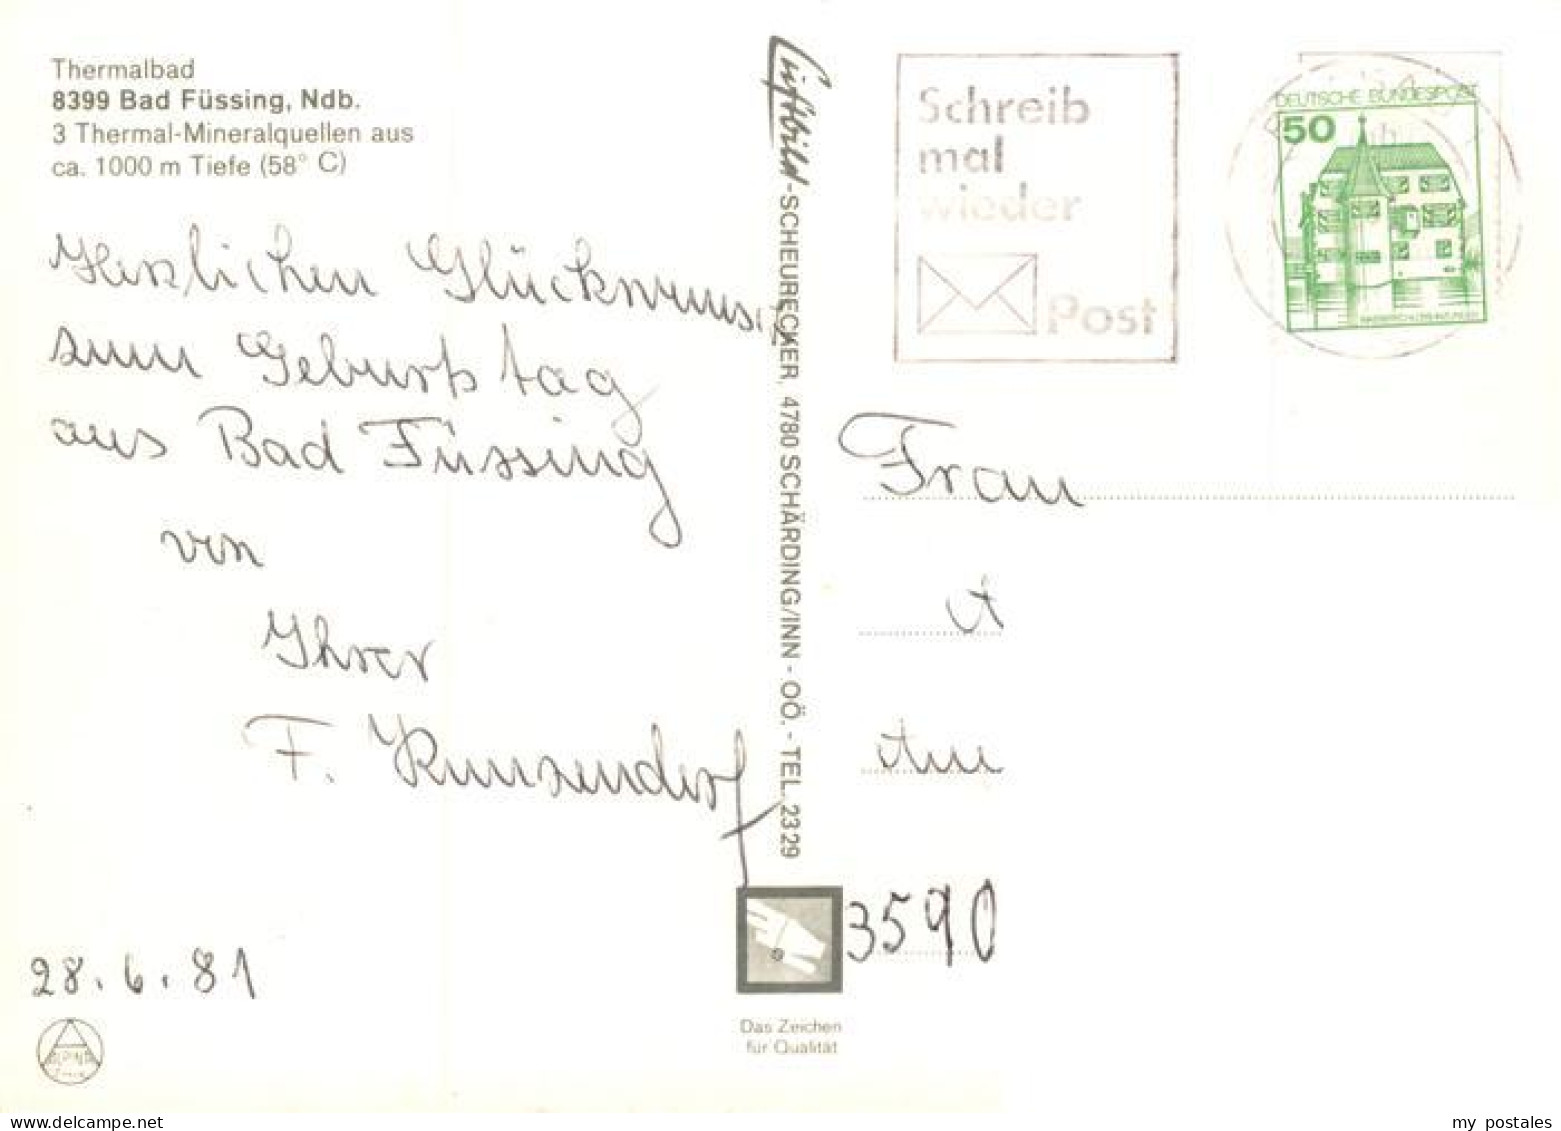 Thermalbad
8399 Bad Füssing, Ndb.
3 Thermal-Mineralquellen aus
ca. 1000 m Tiefe (58° C)
Herzlichen Glückwunsch
zum Geburtstag
aus Bad Füssing
von
Ihrer
F.
28.6.81
Luftbild-SCHEURECKER, 4780 SCHÄRDING/INN - OÖ. - TEL. 2329
Das Zeichen
für Qualität
Schreib
mal
wieder
Post
DEUTSCHE BUNDESPOST
50
Frau
3590
my postales